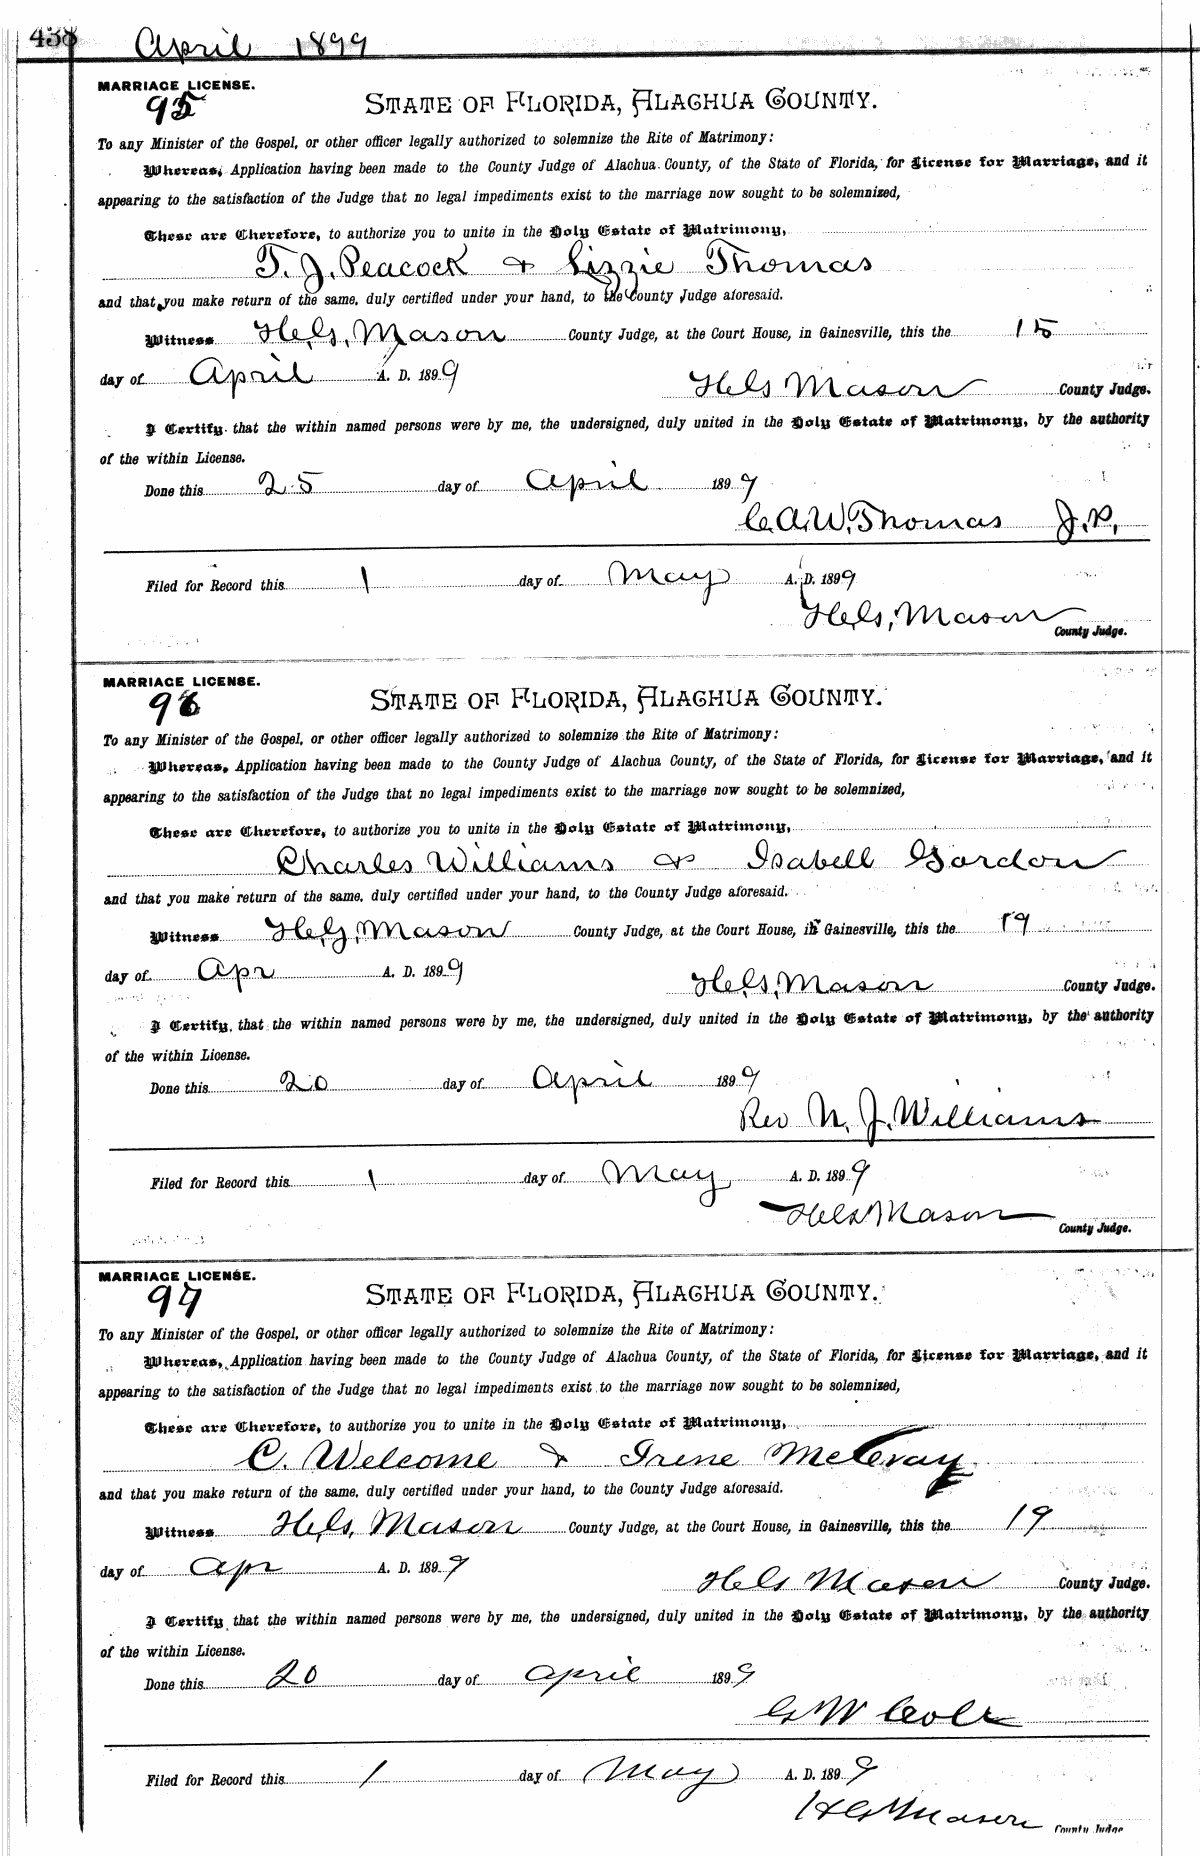 438 April 1899
MARRIAGE LICENSE.
95
STATE OF FLORIDA, ALACHUA COUNTY.
To any Minister of the Gospel, or other officer legally authorized to solemnize the Rite of Matrimony:
Whereas, Application having been made to the County Judge of Alachua County, of the State of Florida, for License for Marriage, and it
appearing to the satisfaction of the Judge that no legal impediments exist to the marriage now sought to be solemnized,
These are Therefore, to authorize you to unite in the Holy Estate of Matrimony,
T. J. Peacock & Lizzie Thomas
and that you make return of the same, duly certified under your hand, to the County Judge aforesaid.
Witness H. G. Mason County Judge, at the Court House, in Gainesville, this the 15
day of April A. D. 1899 H. G. Mason County Judge.
I Certify that the within named persons were by me, the undersigned, duly united in the Holy Estate of Matrimony, by the authority
of the within License.
Done this 25 day of April 1899
C. A. W. Thomas J. P.
Filed for Record this 1 day of May A. D. 1899
H. G. Mason
County Judge.
MARRIAGE LICENSE.
96
STATE OF FLORIDA, ALACHUA COUNTY.
To any Minister of the Gospel, or other officer legally authorized to solemnize the Rite of Matrimony:
Whereas, Application having been made to the County Judge of Alachua County, of the State of Florida, for License for Marriage, and it
appearing to the satisfaction of the Judge that no legal impediments exist to the marriage now sought to be solemnized,
These are Therefore, to authorize you to unite in the Holy Estate of Matrimony,
Charles Williams & Isabell Gordon
and that you make return of the same, duly certified under your hand, to the County Judge aforesaid.
Witness H. G. Mason County Judge, at the Court House, in Gainesville, this the 19
day of Apr A. D. 1899 H. G. Mason County Judge.
I Certify that the within named persons were by me, the undersigned, duly united in the Holy Estate of Matrimony, by the authority
of the within License.
Done this 20 day of April 1899
Rev N. J. Williams
Filed for Record this 1 day of May A. D. 1899
H G Mason
County Judge.
MARRIAGE LICENSE.
97
STATE OF FLORIDA, ALACHUA COUNTY.
To any Minister of the Gospel, or other officer legally authorized to solemnize the Rite of Matrimony:
Whereas, Application having been made to the County Judge of Alachua County, of the State of Florida, for License for Marriage, and it
appearing to the satisfaction of the Judge that no legal impediments exist to the marriage now sought to be solemnized,
These are Therefore, to authorize you to unite in the Holy Estate of Matrimony,
C. Welcome & Irene McCray
and that you make return of the same, duly certified under your hand, to the County Judge aforesaid.
Witness H. G. Mason County Judge, at the Court House, in Gainesville, this the 19
day of Apr A. D. 1899 H G Mason County Judge.
I Certify that the within named persons were by me, the undersigned, duly united in the Holy Estate of Matrimony, by the authority
of the within License.
Done this 20 day of April 1899
G W Cole
Filed for Record this 1 day of May A. D. 1899
H G Mason
County Judge